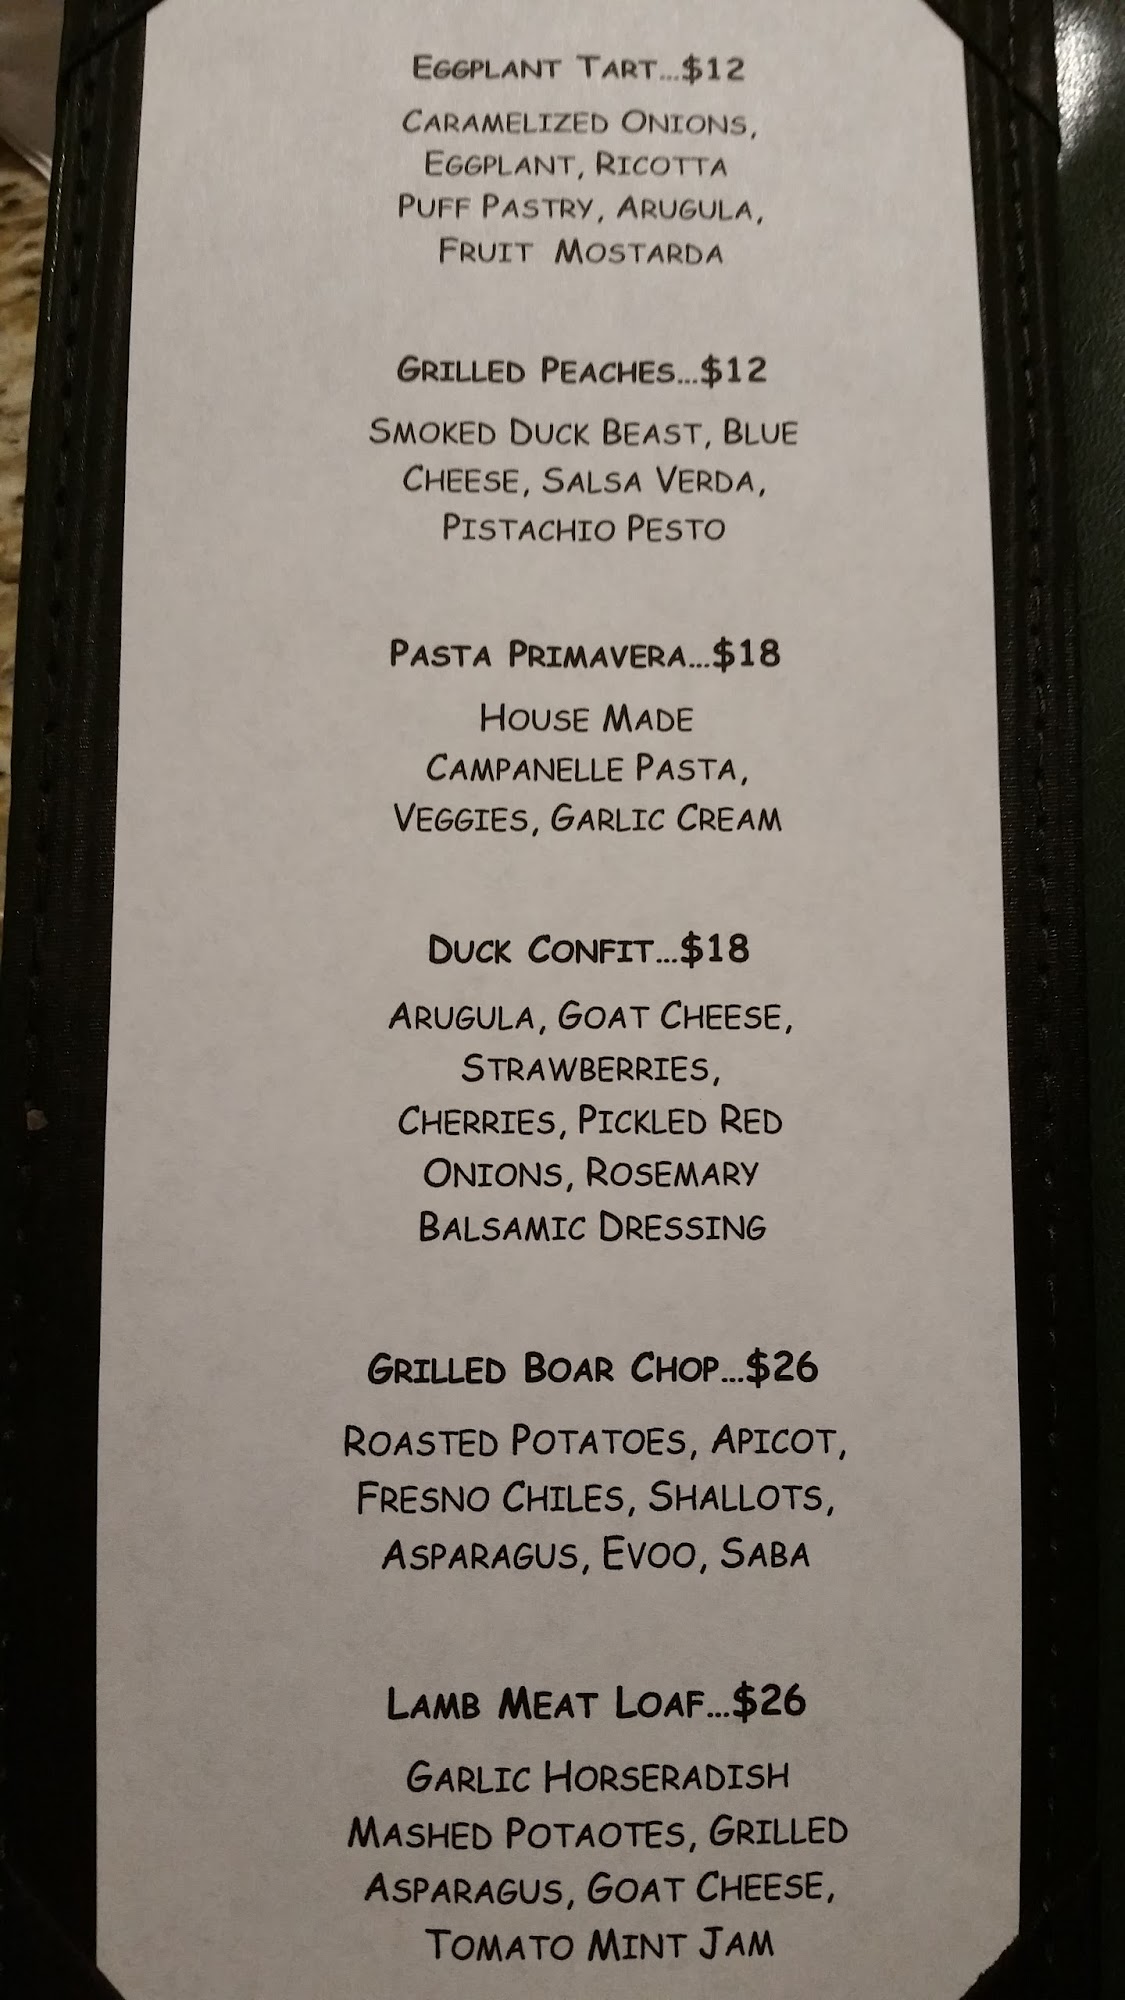 EGGPLANT TART...$12
CARAMELIZED ONIONS,
EGGPLANT, RICOTTA
PUFF PASTRY, ARUGULA,
FRUIT MOSTARDA
GRILLED PEACHES...$12
SMOKED DUCK BEAST, BLUE
CHEESE, SALSA VERDA,
PISTACHIO PESTO
PASTA PRIMAVERA...$18
HOUSE MADE
CAMPANELLE PASTA,
VEGGIES, GARLIC CREAM
DUCK CONFIT...$18
ARUGULA, GOAT CHEESE,
STRAWBERRIES,
CHERRIES, PICKLED RED
ONIONS, ROSEMARY
BALSAMIC DRESSING
GRILLED BOAR CHOP...$26
ROASTED POTATOES, APICOT,
FRESNO CHILES, SHALLOTS,
ASPARAGUS, EVOO, SABA
LAMB MEAT LOAF...$26
GARLIC HORSERADISH
MASHED POTAOTES, GRILLED
ASPARAGUS, GOAT CHEESE,
TOMATO MINT JAM